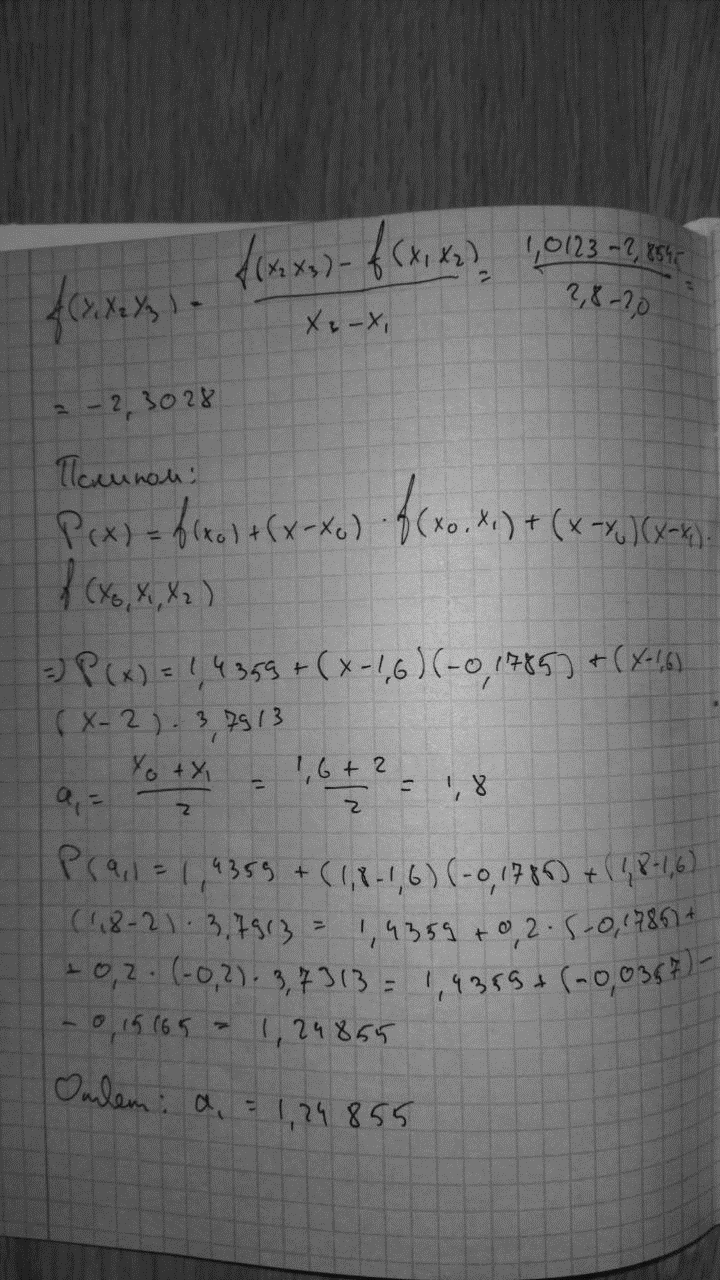 f(x₁x₂x₃) = (f(x₂x₃) - f(x₁x₂)) / (x₂ - x₁) = (1,0123 - 2,8545) / (2,8 - 2,0) =
= -2,3028
Полином:
P(x) = f(x₀) + (x - x₀) · f(x₀, x₁) + (x - x₀)(x - x₁) ·
f(x₀, x₁, x₂)
=> P(x) = 1,4359 + (x - 1,6)(-0,1785) + (x - 1,6)
(x - 2) · 3,7913
a₁ = (x₀ + x₁) / 2 = (1,6 + 2) / 2 = 1,8
P(a₁) = 1,4359 + (1,8 - 1,6)(-0,1785) + (1,8 - 1,6)
(1,8 - 2) · 3,7913 = 1,4359 + 0,2 · (-0,1785) +
+ 0,2 · (-0,2) · 3,7913 = 1,4359 + (-0,0357) -
- 0,15165 = 1,24855
Ответ: a₁ = 1,24855